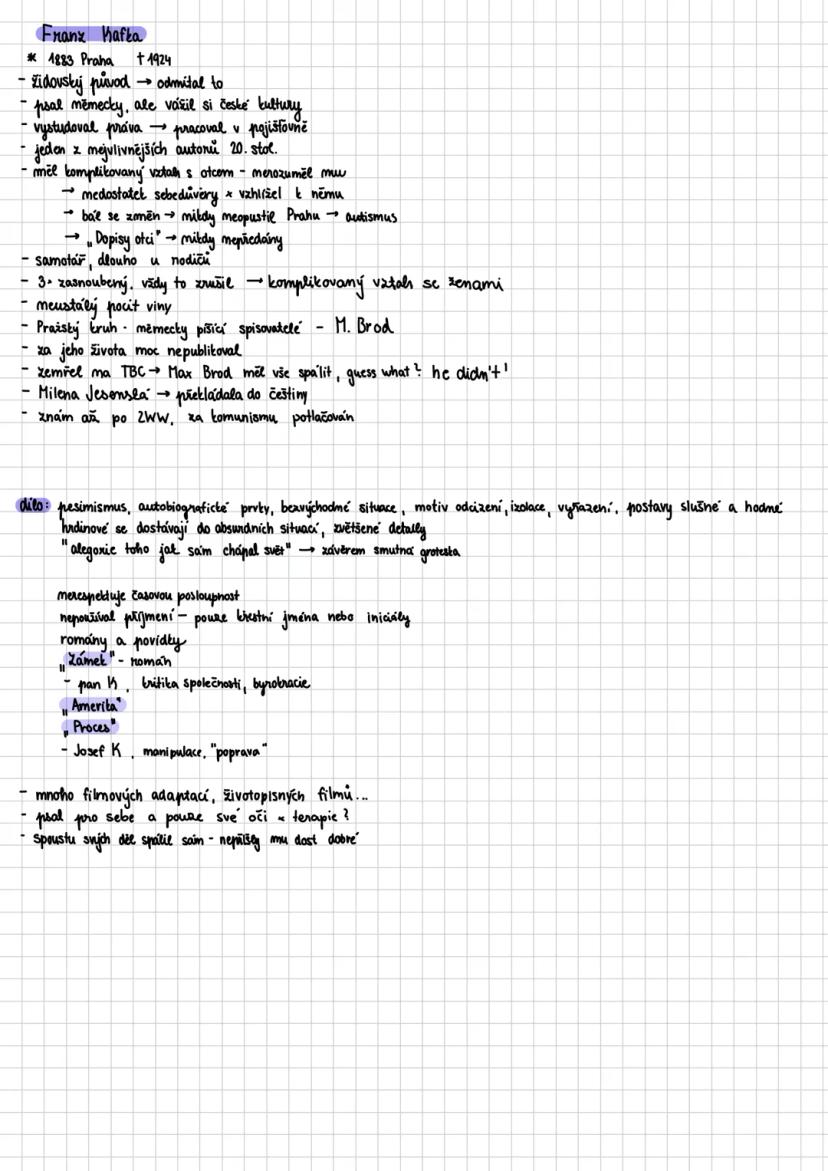 Franz Kafka
* 1883 Praha † 1924
- židovský původ → odmítal to
- psal německy, ale vážil si české kultury
- vystudoval práva → pracoval v pojišťovně
- jeden z nejvlivnějších autorů 20. stol.
- měl komplikovaný vztah s otcem - nerozuměl mu
→ nedostatek sebedůvěry × vzhlížel k němu
→ bál se změn → nikdy neopustil Prahu → autismus
→ „Dopisy otci" → nikdy nepředány
- samotář, dlouho u rodičů
- 3× zasnoubený, vždy to zrušil → komplikovaný vztah se ženami
- neustálý pocit viny
- Pražský kruh - německy píšící spisovatelé - M. Brod
- za jeho života moc nepublikoval
- zemřel na TBC → Max Brod měl vše spálit, guess what? he didn't!
- Milena Jesenská → překládala do češtiny
- znám až po 2WW, za komunismu potlačován
dílo: pesimismus, autobiografické prvky, bezvýchodné situace, motiv odcizení, izolace, vyřazení, postavy slušné a hodné
hrdinové se dostávají do absurdních situací, zvětšené detaily
"alegorie toho jak sám chápal svět" → závěrem smutná groteska
nerespektuje časovou posloupnost
nepoužíval příjmení - pouze křestní jména nebo iniciály
romány a povídky
„Zámek" - román
- pan K, kritika společnosti, byrokracie
„Amerika"
„Proces"
- Josef K, manipulace, "poprava"
- mnoho filmových adaptací, životopisných filmů...
- psal pro sebe a pouze své oči × terapie?
- spoustu svých děl spálil sám - nepřišly mu dost dobré